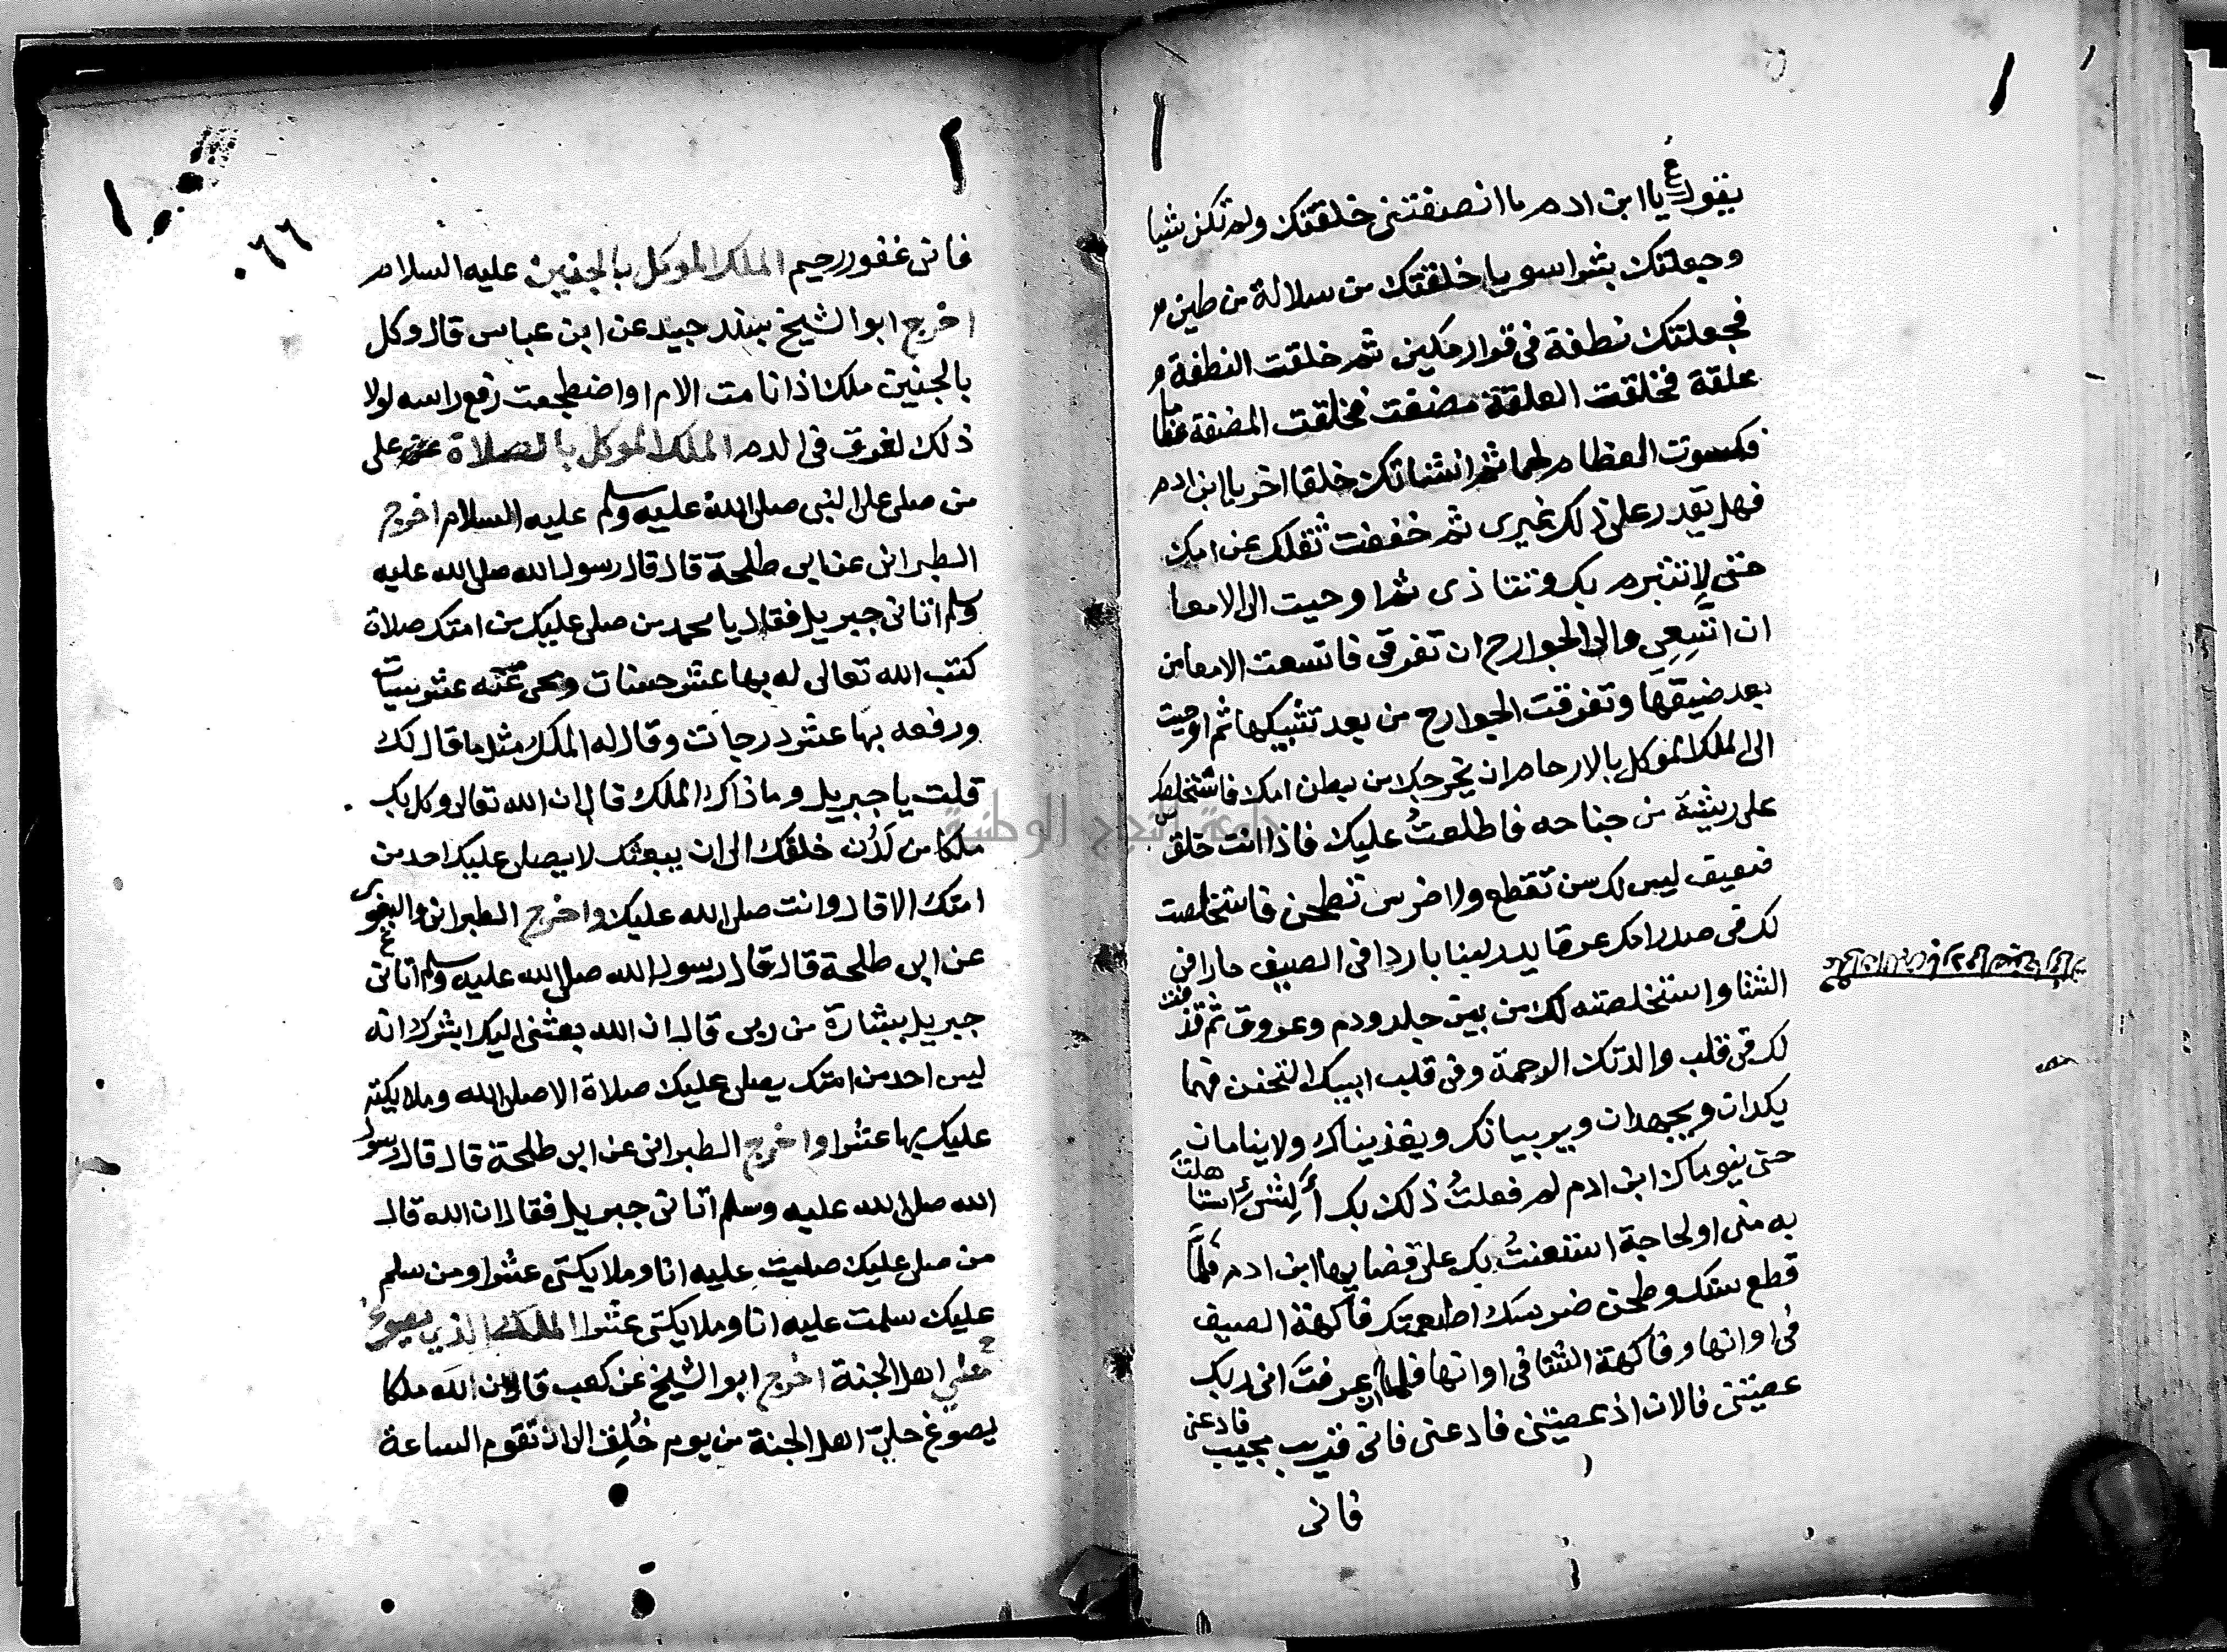 يقول يا ابن ادم ما انصفتني خلقتك ولم تكن شيا
وجعلتك بشرا سويا خلقتك من سلالة من طين
فجعلتك نطفة في قرار مكين ثم خلقت النطفة
علقة فخلقت العلقة مضغة فخلقت المضغة عظاما
فكسوت العظام لحما ثم انشاتك خلقا اخر يا ابن ادم
فهل يقدر على ذلك غيرى ثم خففت ثقلك عن امك
حتى لا تتبرم بك وتتاذى ثم اوحيت الى الامعا
ان اتسعي والى الجوارح ان تفرقي فاتسعت الامعا من
بعد ضيقها وتفرقت الجوارح من بعد تشبيكها ثم اوحيت
الى الملك الموكل بالارحام ان يخرجك من بطن امك فاستخلصك
على ريشة من جناحه فاطلعتُ عليك فاذا انت خلق
ضعيف ليس لك سن تقطع ولا ضرس تطحن فاستخلصت
لك في صدر امك عرقا يدر لبنا باردا في الصيف حارا في
الشتا واستخلصته لك من بين جلد ودم وعروق ثم قذفت
لك في قلب والدتك الرحمة وفي قلب ابيك التحنن فهما
يكدان ويجهدان ويربيانك ويغذيناك ولا ينامان
حتى ينوماك ابن ادم لم فعلتُ ذلك بك أَلِشَىْءٍ استاهلتَ
به منى او لحاجة استعنتُ بك على قضايها ابن ادم فلمَّا
قطع سنك وطحن ضرسك اطعمتك فاكهة الصيف
في اوانها وفاكهة الشتا في اوانها فلما ان عرفتَ انى ربك
عصيتنى فالان اذ عصيتنى فادعنى فانى قريب مجيب فادعنى
فانى
١
٠٦٦
فانى غفور رحيم الملك الموكل بالجنين عليه السلام
اخرج ابو الشيخ بسند جيد عن ابن عباس قال وكل
بالجنين ملك اذا نامت الام او اضطجعت رفع راسه لولا
ذلك لغرق في الدم الملك الموكل بالصلاة على
من صلى على النبي صلى الله عليه وسلم عليه السلام اخرج
الطبرانى عن ابى طلحة قال قال رسول الله صلى الله عليه
وسلم اتانى جبريل فقال يا محمد من صلى عليك من امتك صلاة
كتب الله تعالى له بها عشر حسنات ومحى عنه عشر سيات
ورفعه بها عشر درجات وقال له الملك مثل ما قال لك
قلت يا جبريل وما ذاك الملك قال ان الله تعالى وكل بك
ملكا من لَدُن خلقك الى ان يبعثك لا يصلى عليك احد من
امتك الا قال وانت صلى الله عليك واخرج الطبرانى والبغوى
عن ابى طلحة قال قال رسول الله صلى الله عليه وسلم اتانى
جبريل ببشارة من ربى قال ان الله بعثنى اليك ابشرك انه
ليس احد من امتك يصلى عليك صلاة الا صلى الله وملايكته
عليك بها عشرا واخرج الطبرانى عن ابى طلحة قال قال رسول
الله صلى الله عليه وسلم اتانى جبريل فقال ان الله قال
من صلى عليك صليت عليه انا وملايكتى عشرا ومن سلم
عليك سلمت عليه انا وملايكتى عشرا الملك الذي يصوغ
حلي اهل الجنة اخرج ابو الشيخ عن كعب قال ان الله ملكا
يصوغ حلىّ اهل الجنة من يوم خُلِق الى ان تقوم الساعة
جامعة النجاح الوطنية